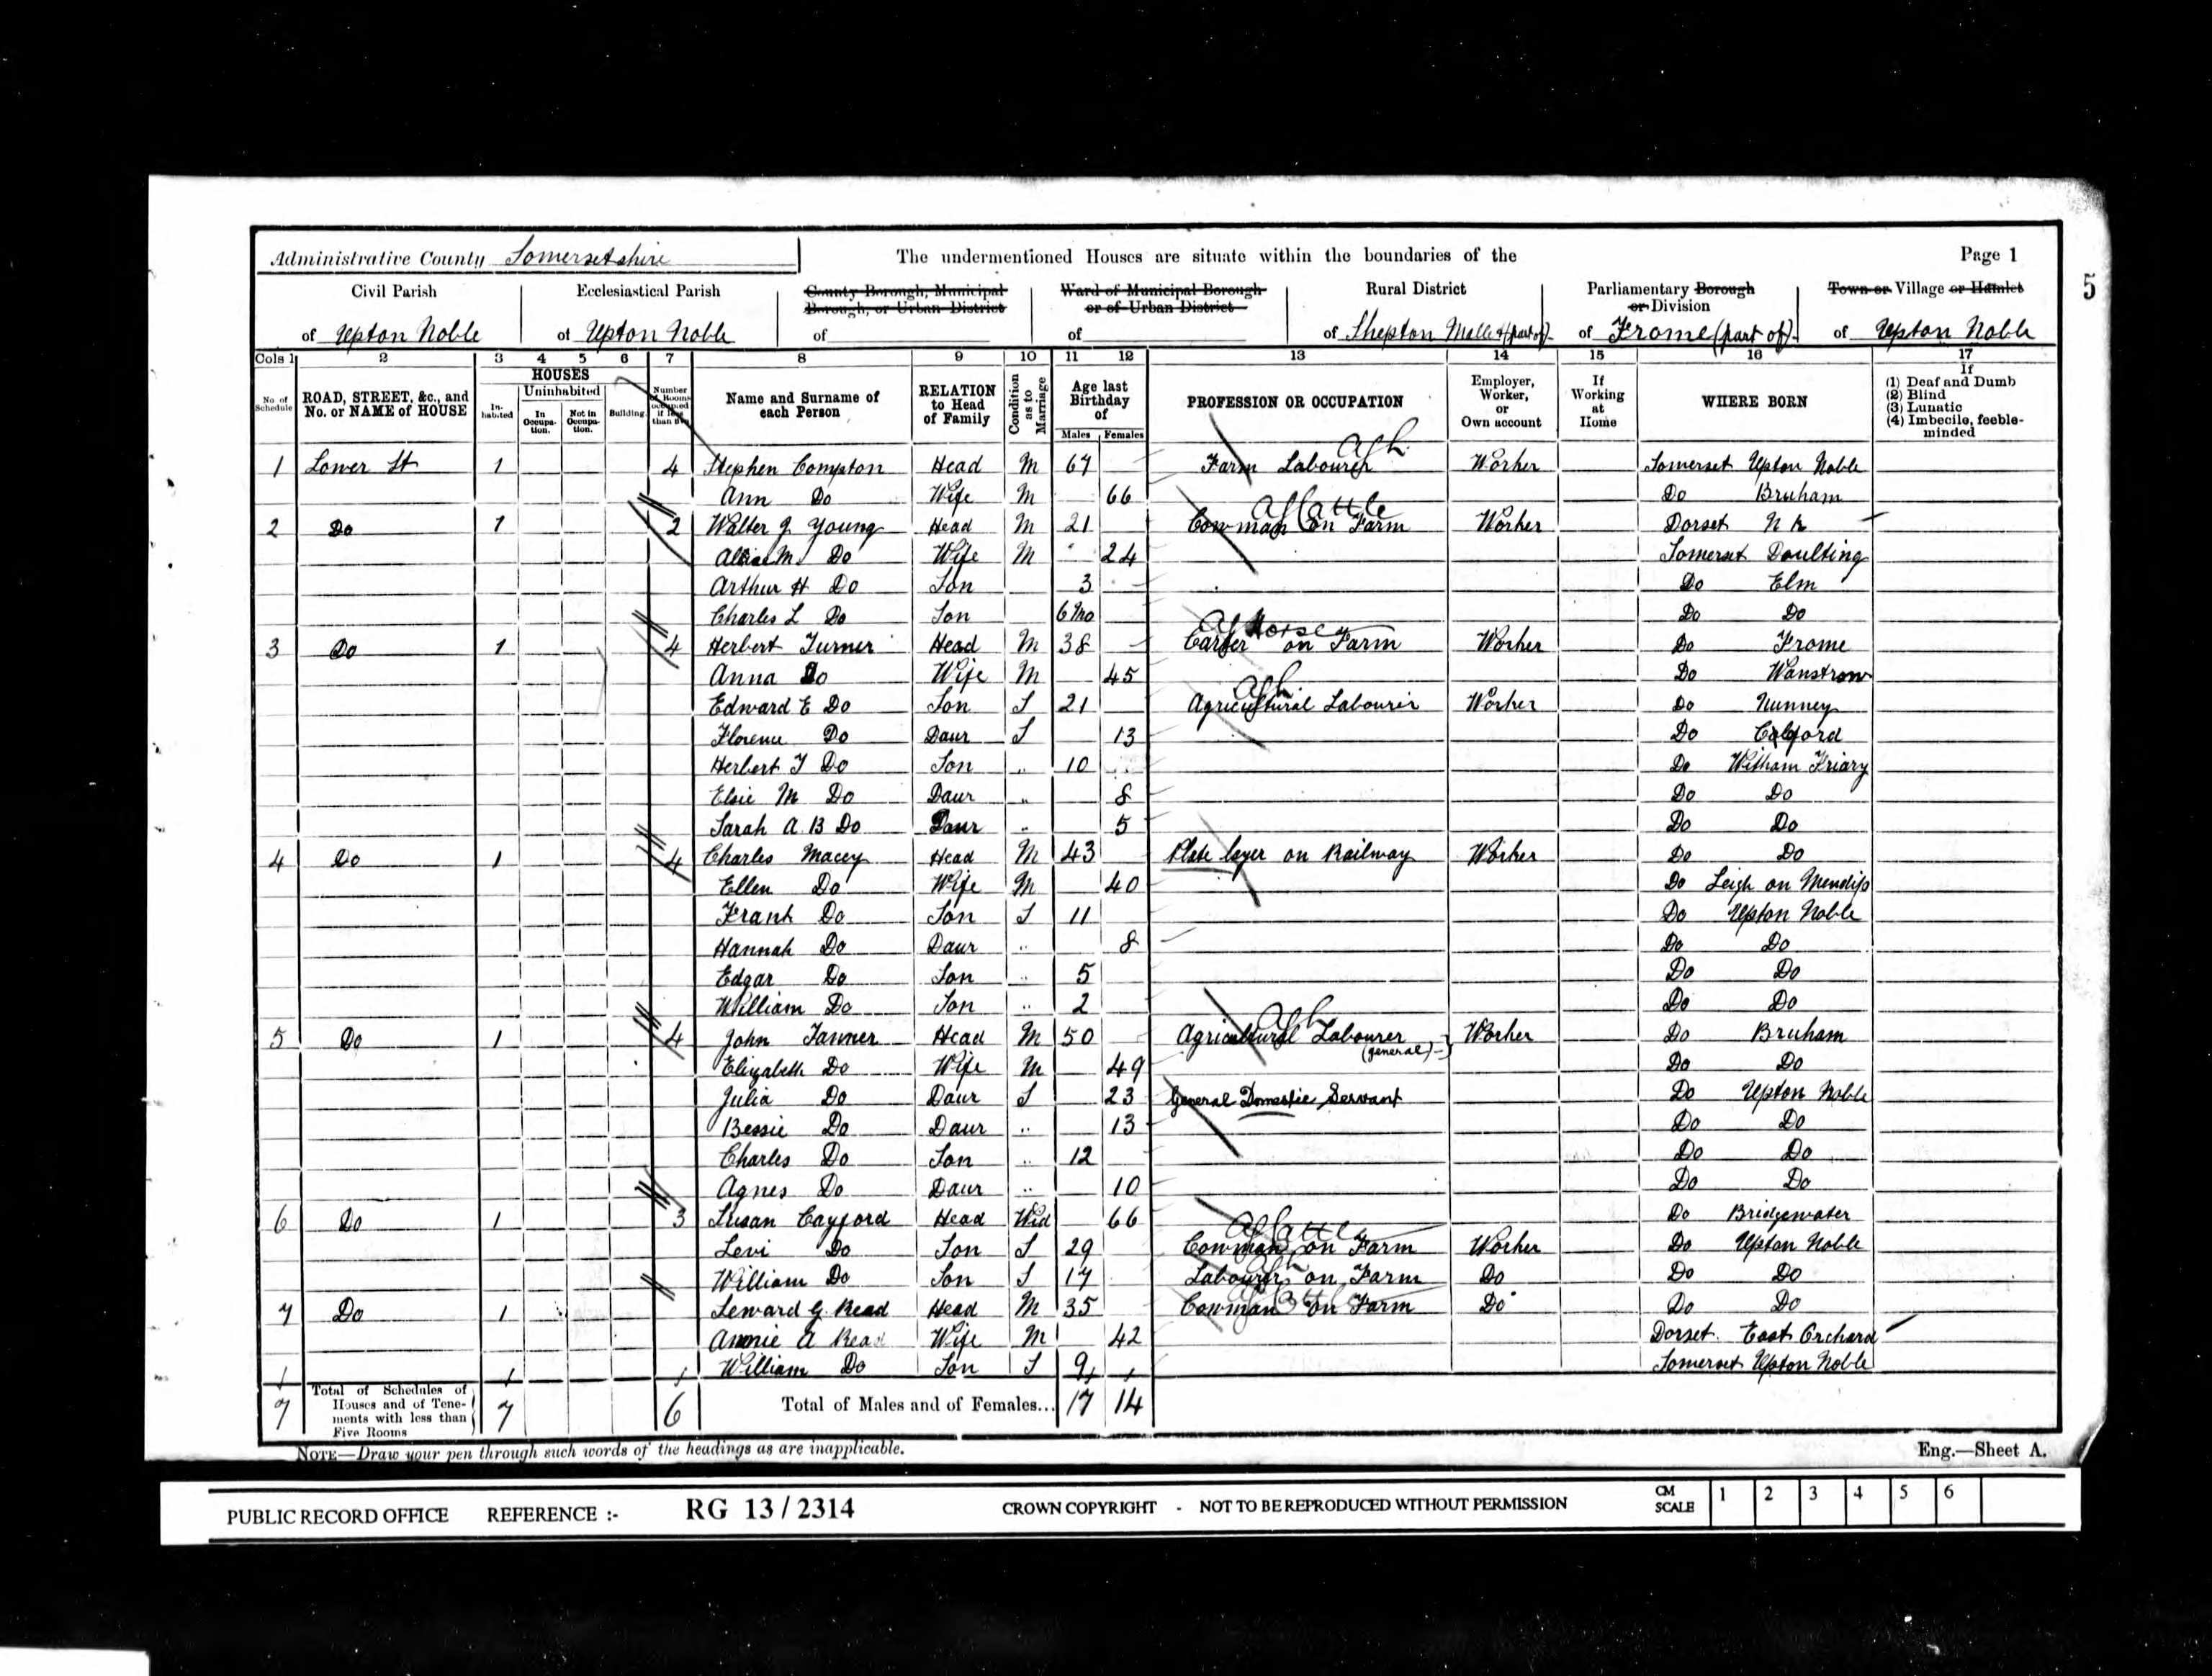 Administrative County Somersetshire
The undermentioned Houses are situate within the boundaries of the
Page 1
5
Civil Parish of Upton Noble
Ecclesiastical Parish of Upton Noble
County Borough, Municipal Borough, or Urban District of
Ward of Municipal Borough or of Urban District of
Rural District of Shepton Mallet (part of)
Parliamentary Borough or Division of Frome (part of)
Town or Village or Hamlet of Upton Noble
Cols 1 2 3 4 5 6 7 8 9 10 11 12 13 14 15 16 17
No of Schedule
ROAD, STREET, &c., and No. or NAME of HOUSE
HOUSES
Inhabited
Uninhabited
In Occupation.
Not in Occupation.
Building
Number of Rooms occupied if less than five
Name and Surname of each Person
RELATION to Head of Family
Condition as to Marriage
Age last Birthday of
Males Females
PROFESSION OR OCCUPATION
Employer, Worker, or Own account
If Working at Home
WHERE BORN
If
(1) Deaf and Dumb
(2) Blind
(3) Lunatic
(4) Imbecile, feeble-minded
1 Lower St 1 4 Stephen Compton Head M 67 Farm Labourer Worker Somerset Upton Noble
Ann Do Wife M 66 Do Bruham
2 Do 1 2 Walter J Young Head M 21 Cowman on Farm Worker Dorset N K
M Do Wife M 24 Somerset Doulting
Arthur H Do Son 3 Do Elm
Charles L Do Son 6 Mo Do Do
3 Do 1 4 Herbert Turner Head M 38 Carter on Farm Worker Do Frome
Anna Do Wife M 45 Do Wanstrow
Edward E Do Son S 21 Agricultural Labourer Worker Do Nunney
Florence Do Daur S 13 Do
Herbert J Do Son " 10 Do Witham Friary
Elsie M Do Daur " 8 Do Do
Sarah A B Do Daur " 5 Do Do
4 Do 1 4 Charles Macey Head M 43 Plate layer on Railway Worker Do Do
Ellen Do Wife M 40 Do Leigh on Mendip
Frank Do Son S 11 Do Upton Noble
Hannah Do Daur " 8 Do Do
Edgar Do Son " 5 Do Do
William Do Son " 2 Do Do
5 Do 1 4 John Tanner Head M 50 Agricultural Labourer (general) Worker Do Bruham
Elizabeth Do Wife M 49 Do Do
Julia Do Daur S 23 General Domestic Servant Do Upton Noble
Bessie Do Daur " 13 Do Do
Charles Do Son " 12 Do Do
Agnes Do Daur " 10 Do Do
6 Do 1 3 Susan Cayford Head Wid 66 Do Bridgewater
Levi Do Son S 29 Cowman on Farm Worker Do Upton Noble
William Do Son S 17 Labourer on Farm Do Do Do
7 Do 1 Seward G. Read Head M 35 Cowman on Farm Do Do Do
Annie A Read Wife M 42 Dorset East Orchard
William Do Son S 9 Somerset Upton Noble
7 Total of Schedules of Houses and of Tenements with less than Five Rooms 7 6 Total of Males and of Females... 17 14
NOTE—Draw your pen through such words of the headings as are inapplicable.
Eng.—Sheet A.
PUBLIC RECORD OFFICE REFERENCE :- RG 13 / 2314 CROWN COPYRIGHT - NOT TO BE REPRODUCED WITHOUT PERMISSION CM SCALE 1 2 3 4 5 6